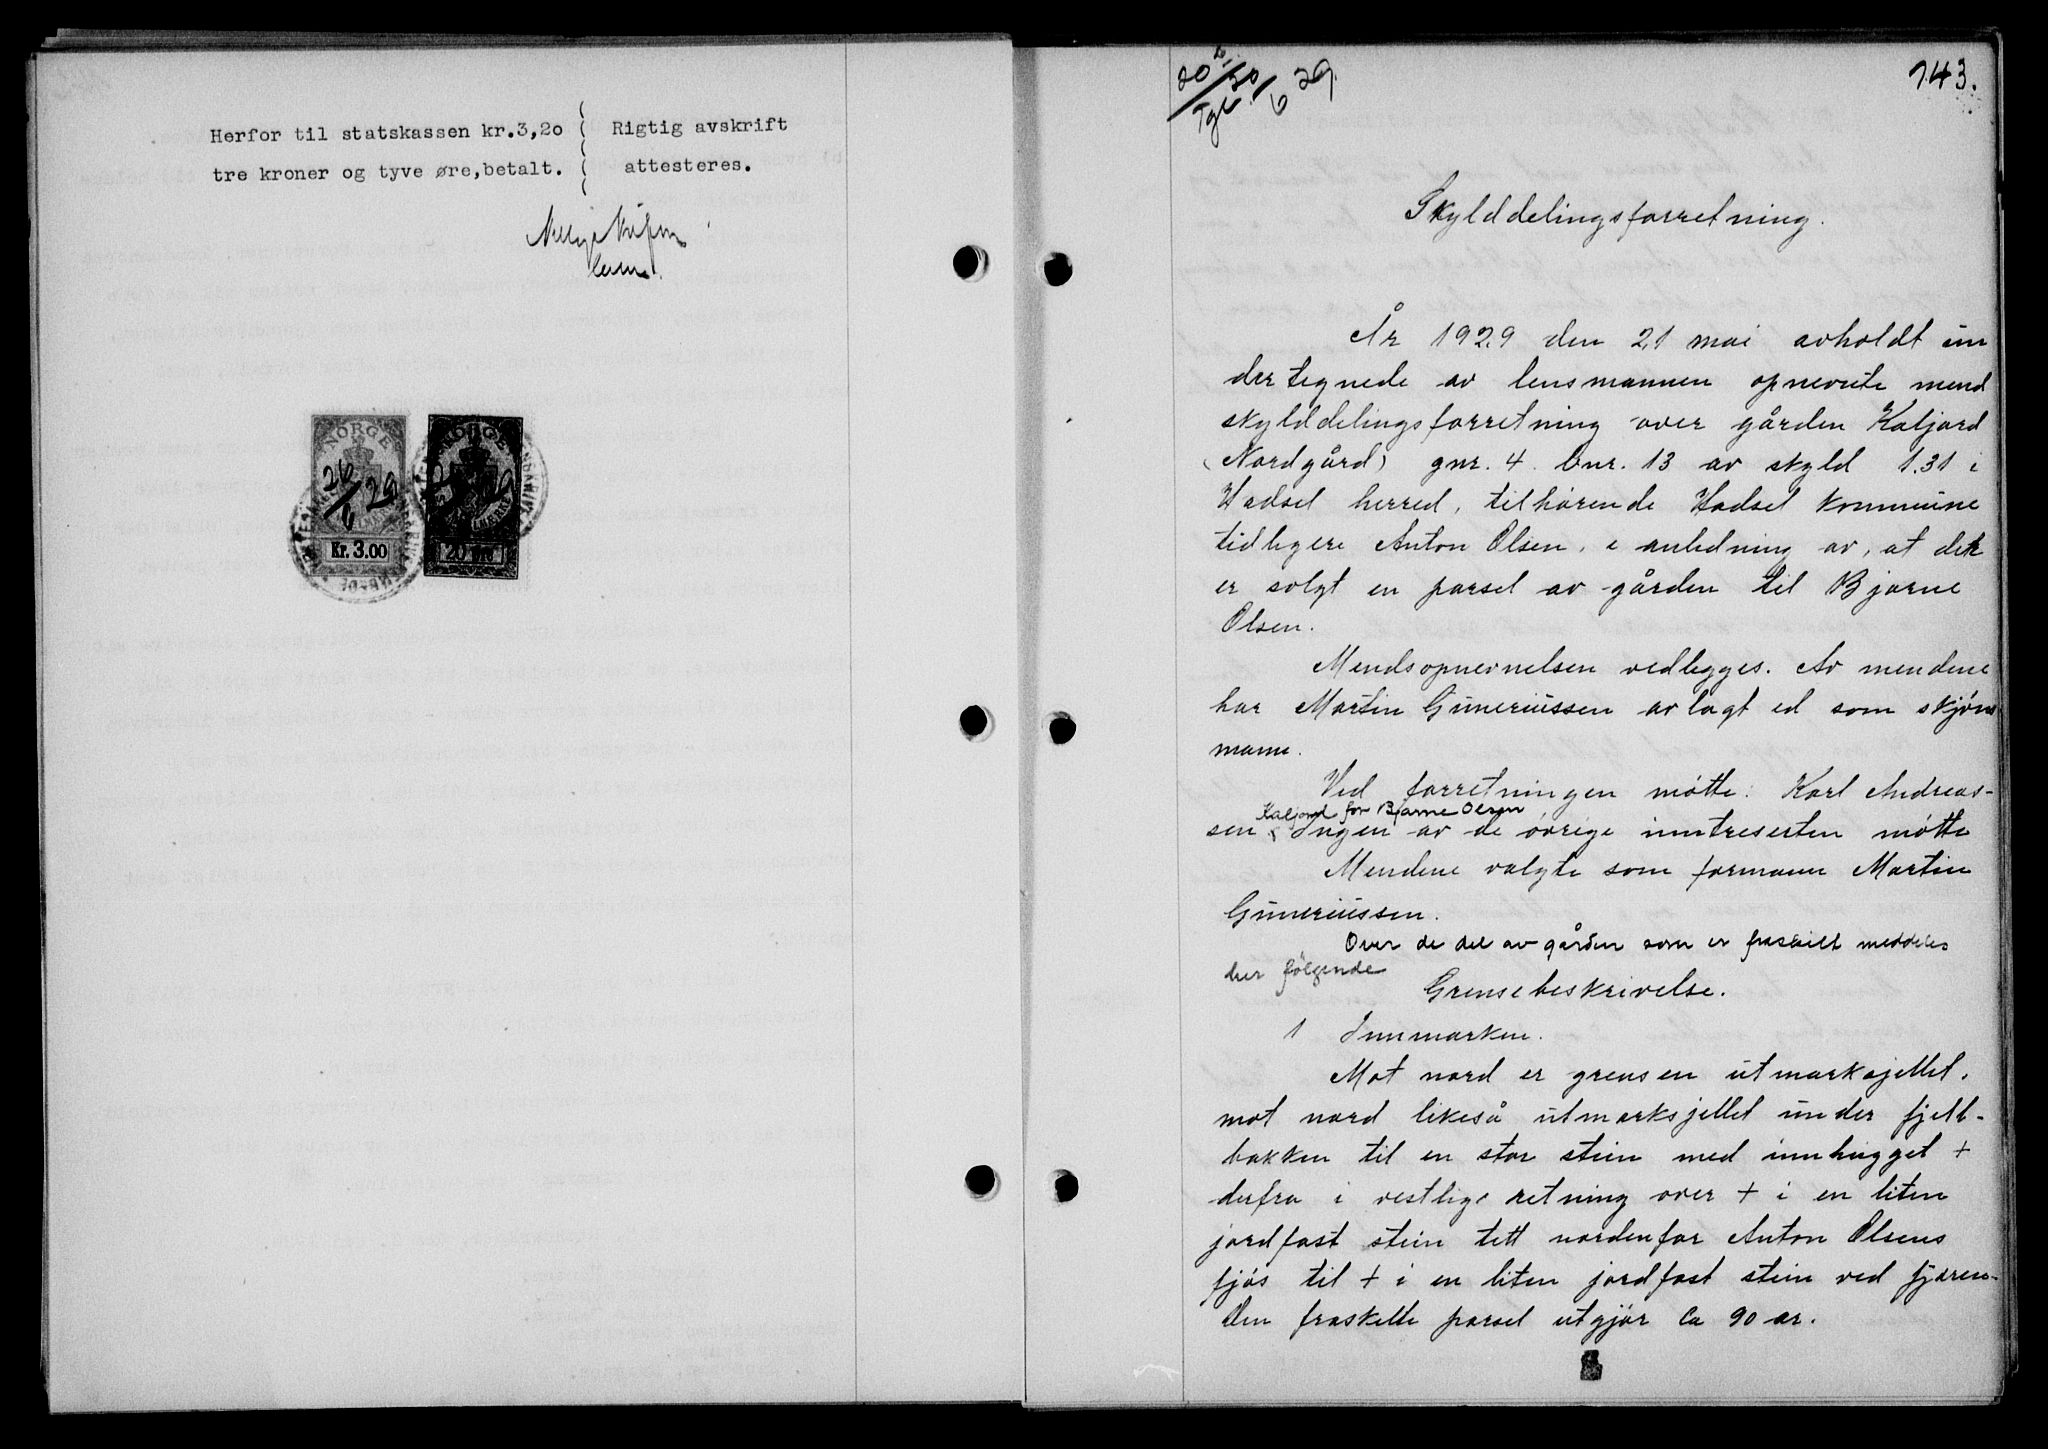 Herfor til statskassen kr.3,20 ( Rigtig avskrift
tre kroner og tyve øre,betalt. ( attesteres.
NORGE
26/6 29
Kr. 3.00
NORGE
20 øre
743.
20/6 29
Skylddelingsforretning.
År 1929 den 21 mai avholdt un
dertegnede av lensmannen opnevnte mend
skylddelingsforretning over gården Kaljord
(Nordgård) gnr. 4 bnr. 13 av skyld 1.31 i
Hadsel herred, tilhørende Hadsel kommune
tidligere Anton Olsen, i anledning av, at det
er solgt en parsel av gården til Bjarne
Olsen.
Mendsopnevnelsen vedlegges. Av mendene
har Martin Guneriussen avlagt ed som skjøns
mann.
Ved forretningen møtte: Karl Andreas-
Kaljord for Bjarne Olsen
sen Ingen av de øvrige inntreserten møtte
Mendene valgte som formann Martin
Guneriussen.
Over de del av gården som er fraskilt meddeles
her følgende
Grensebeskrivelse.
1 Innmarken.
Mot nord er grensen utmarksgjellet,
mot nord likeså utmarksjellet under fjell-
bakken til en stor stein med innhugget +
derfra i vestlige retning over + i en liten
jordfast stein tett nordenfor Anton Olsens
fjøs til + i en liten jordfast stein ved fjæren-
Den fraskilte parsel utgjør ca 90 ar.